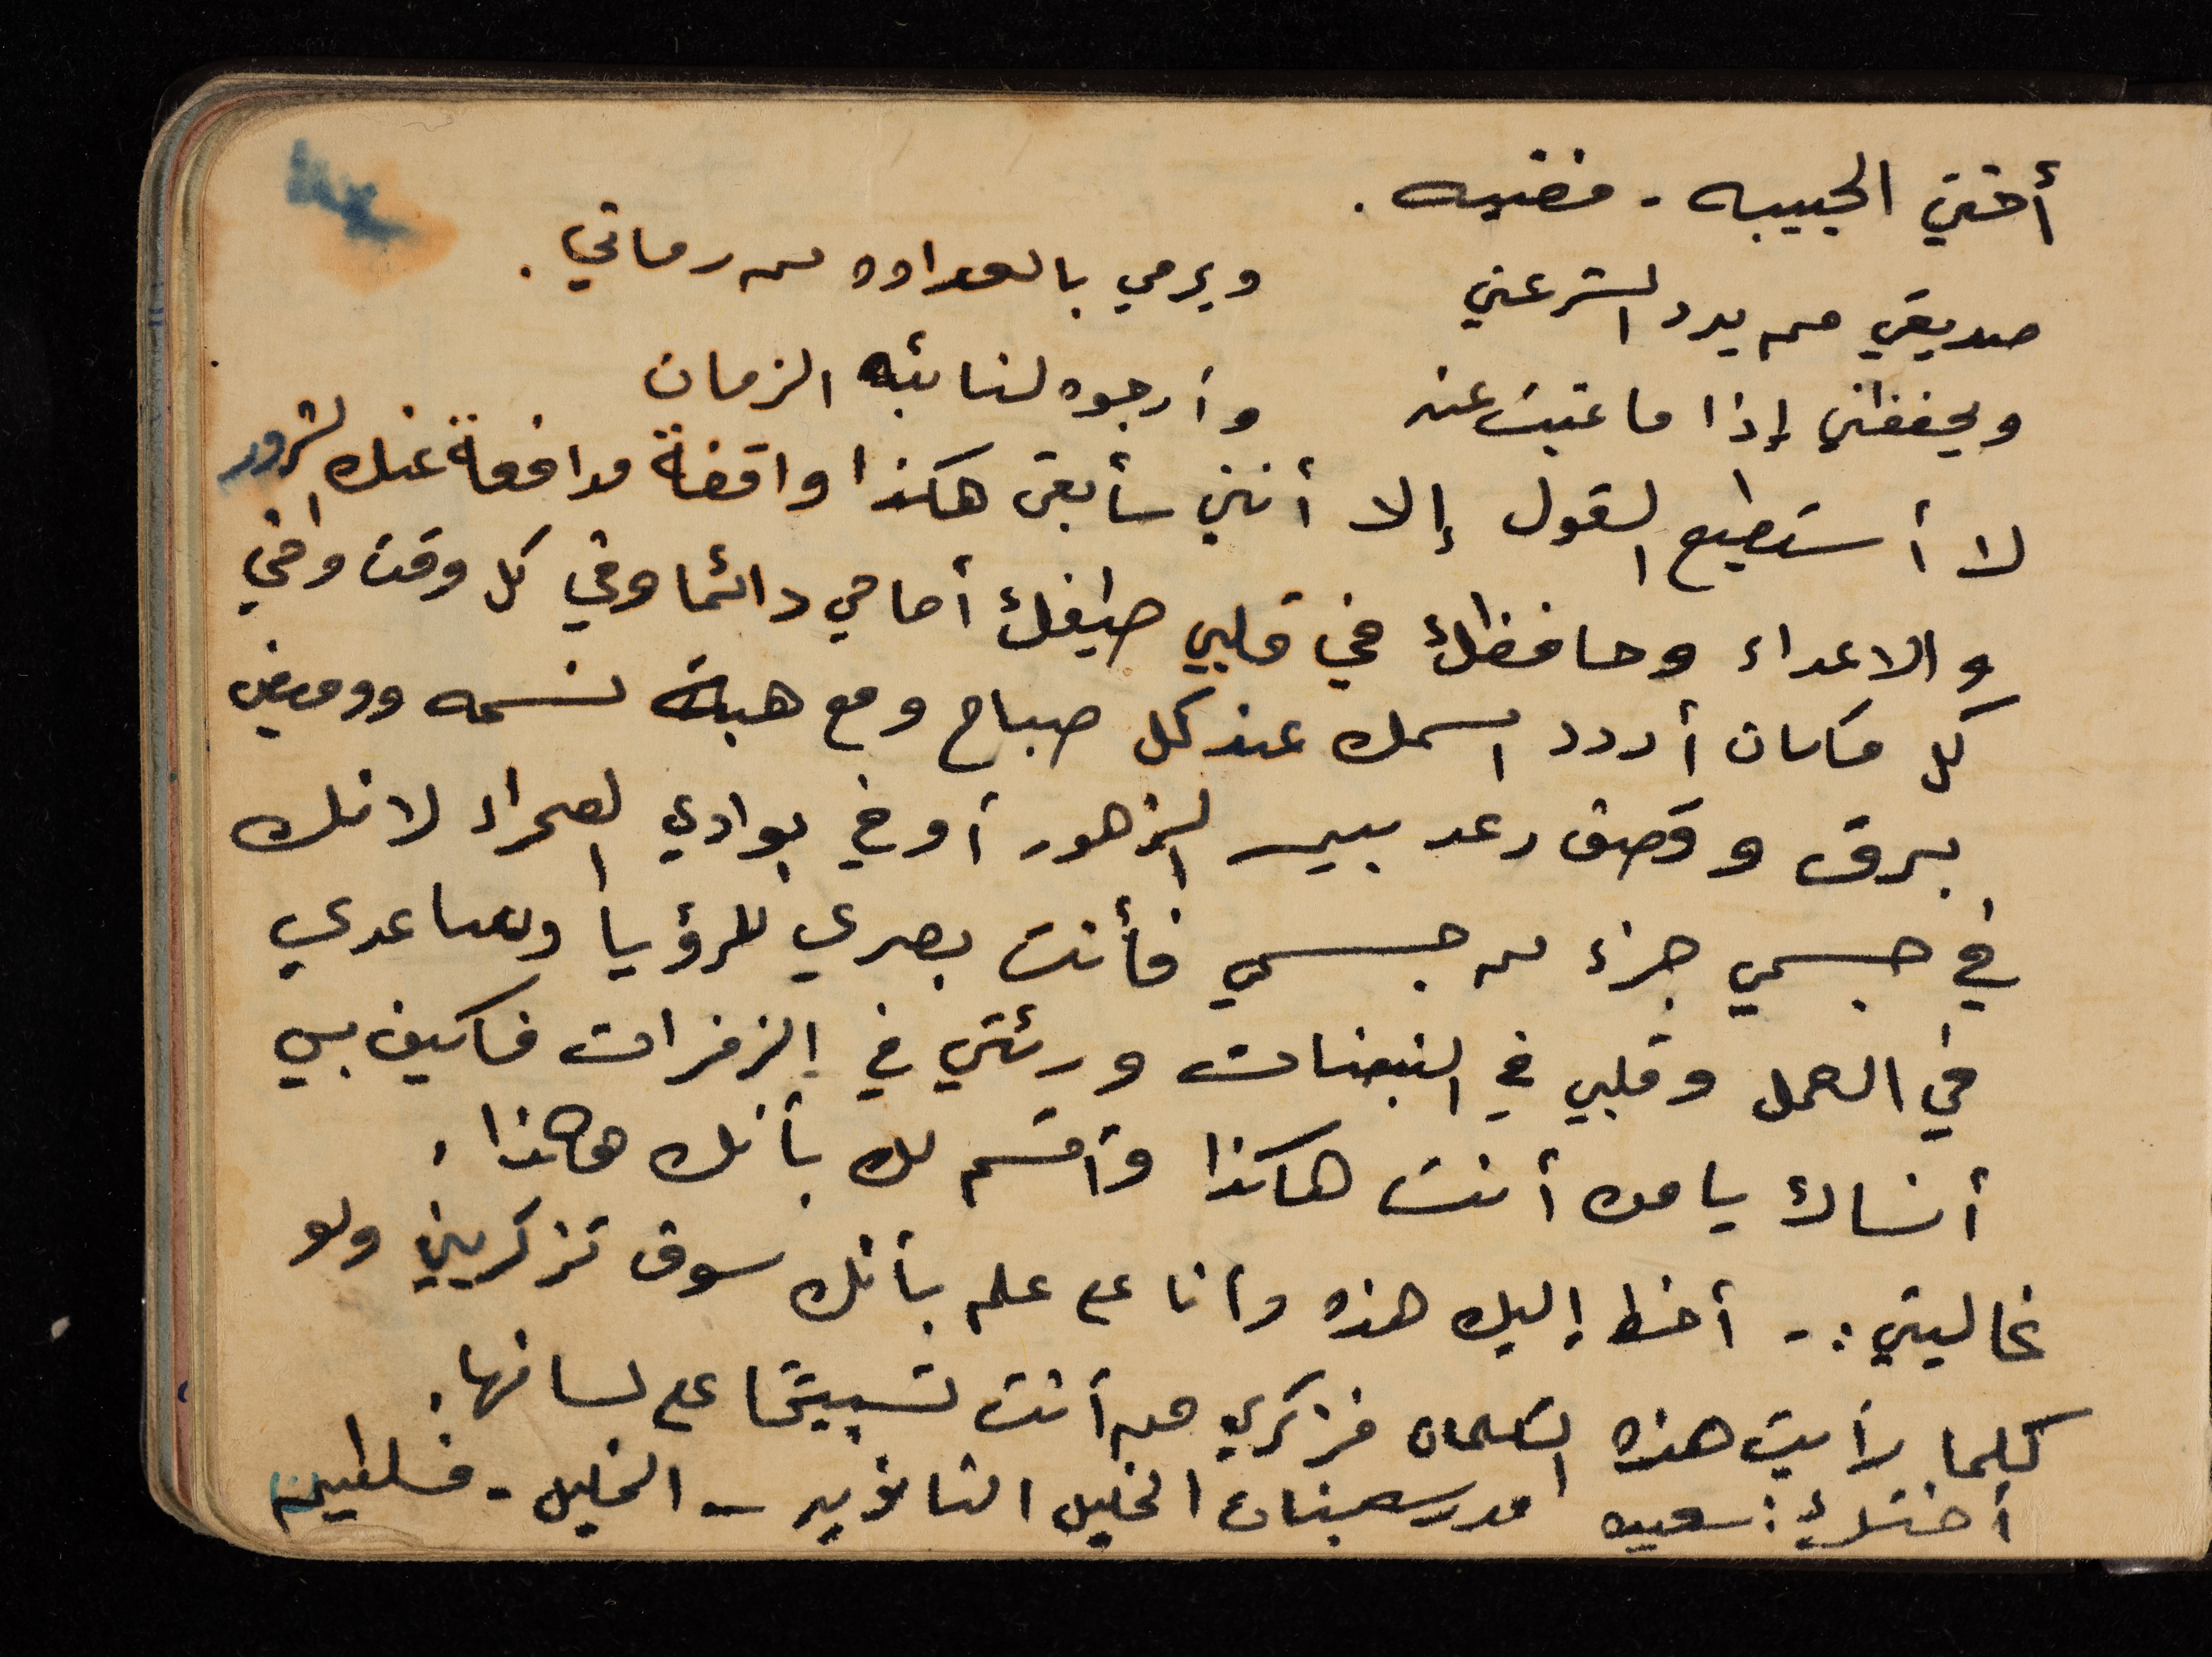 أختي الحبيبه - فضيه .
صديقي من يرد الشر عني ويرمي بالعداوه من رماني .
ويحفظني إذا ما غبت عنه وأرجوه لنائبه الزمان
لا أستطيع القول إلا أنني سأبقى هكذا واقفة مدافعة عنك الشرور
والاعداء وحافظك في قلبي طيفك أمامي دائما وفي كل وقت وفي
كل مكان أردد اسمك عند كل صباح ومع هبة نسمه ووميض
برق وقصف رعد بين الزهور أو في بوادي الصحراء لانك
في جسمي جزء من جسمي فأنت بصري للرؤيا وساعدي
في العمل وقلبي في النبضات ورئتي في الزفرات فاكيف بي
أنساك يا من أنت هاكذا وأقسم لك بأنك هاكذا .
غاليتي :- أخط إليك هذه وأنا على علم بأنك سوف تزكريني ولو
كلما رأيت هذه الكلمات فزكري من أنت تسبيحًا على لسانها .
أختك : مدرسة بنات الخليل الثانويه - الخليل - فلسطين